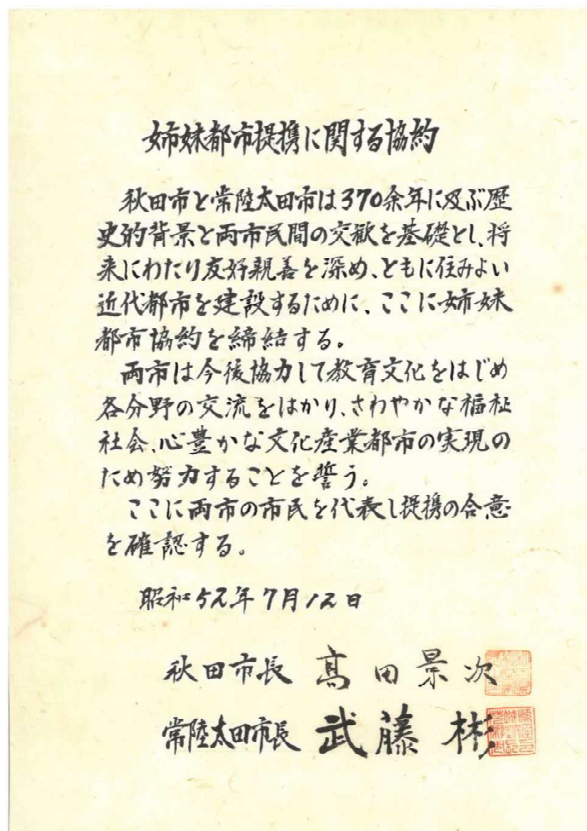 姉妹都市提携に関する協約
秋田市と常陸太田市は370余年に及ぶ歴
史的背景と両市民間の交歓を基礎とし、将
来にわたり友好親善を深め、ともに住みよい
近代都市を建設するために、ここに姉妹
都市協約を締結する。
両市は今後協力して教育文化をはじめ
各分野の交流をはかり、さわやかな福祉
社会、心豊かな文化産業都市の実現の
ため努力することを誓う。
ここに両市の市民を代表し提携の合意
を確認する。
昭和52年7月12日
秋田市長 高田景次
常陸太田市長 武藤 彬